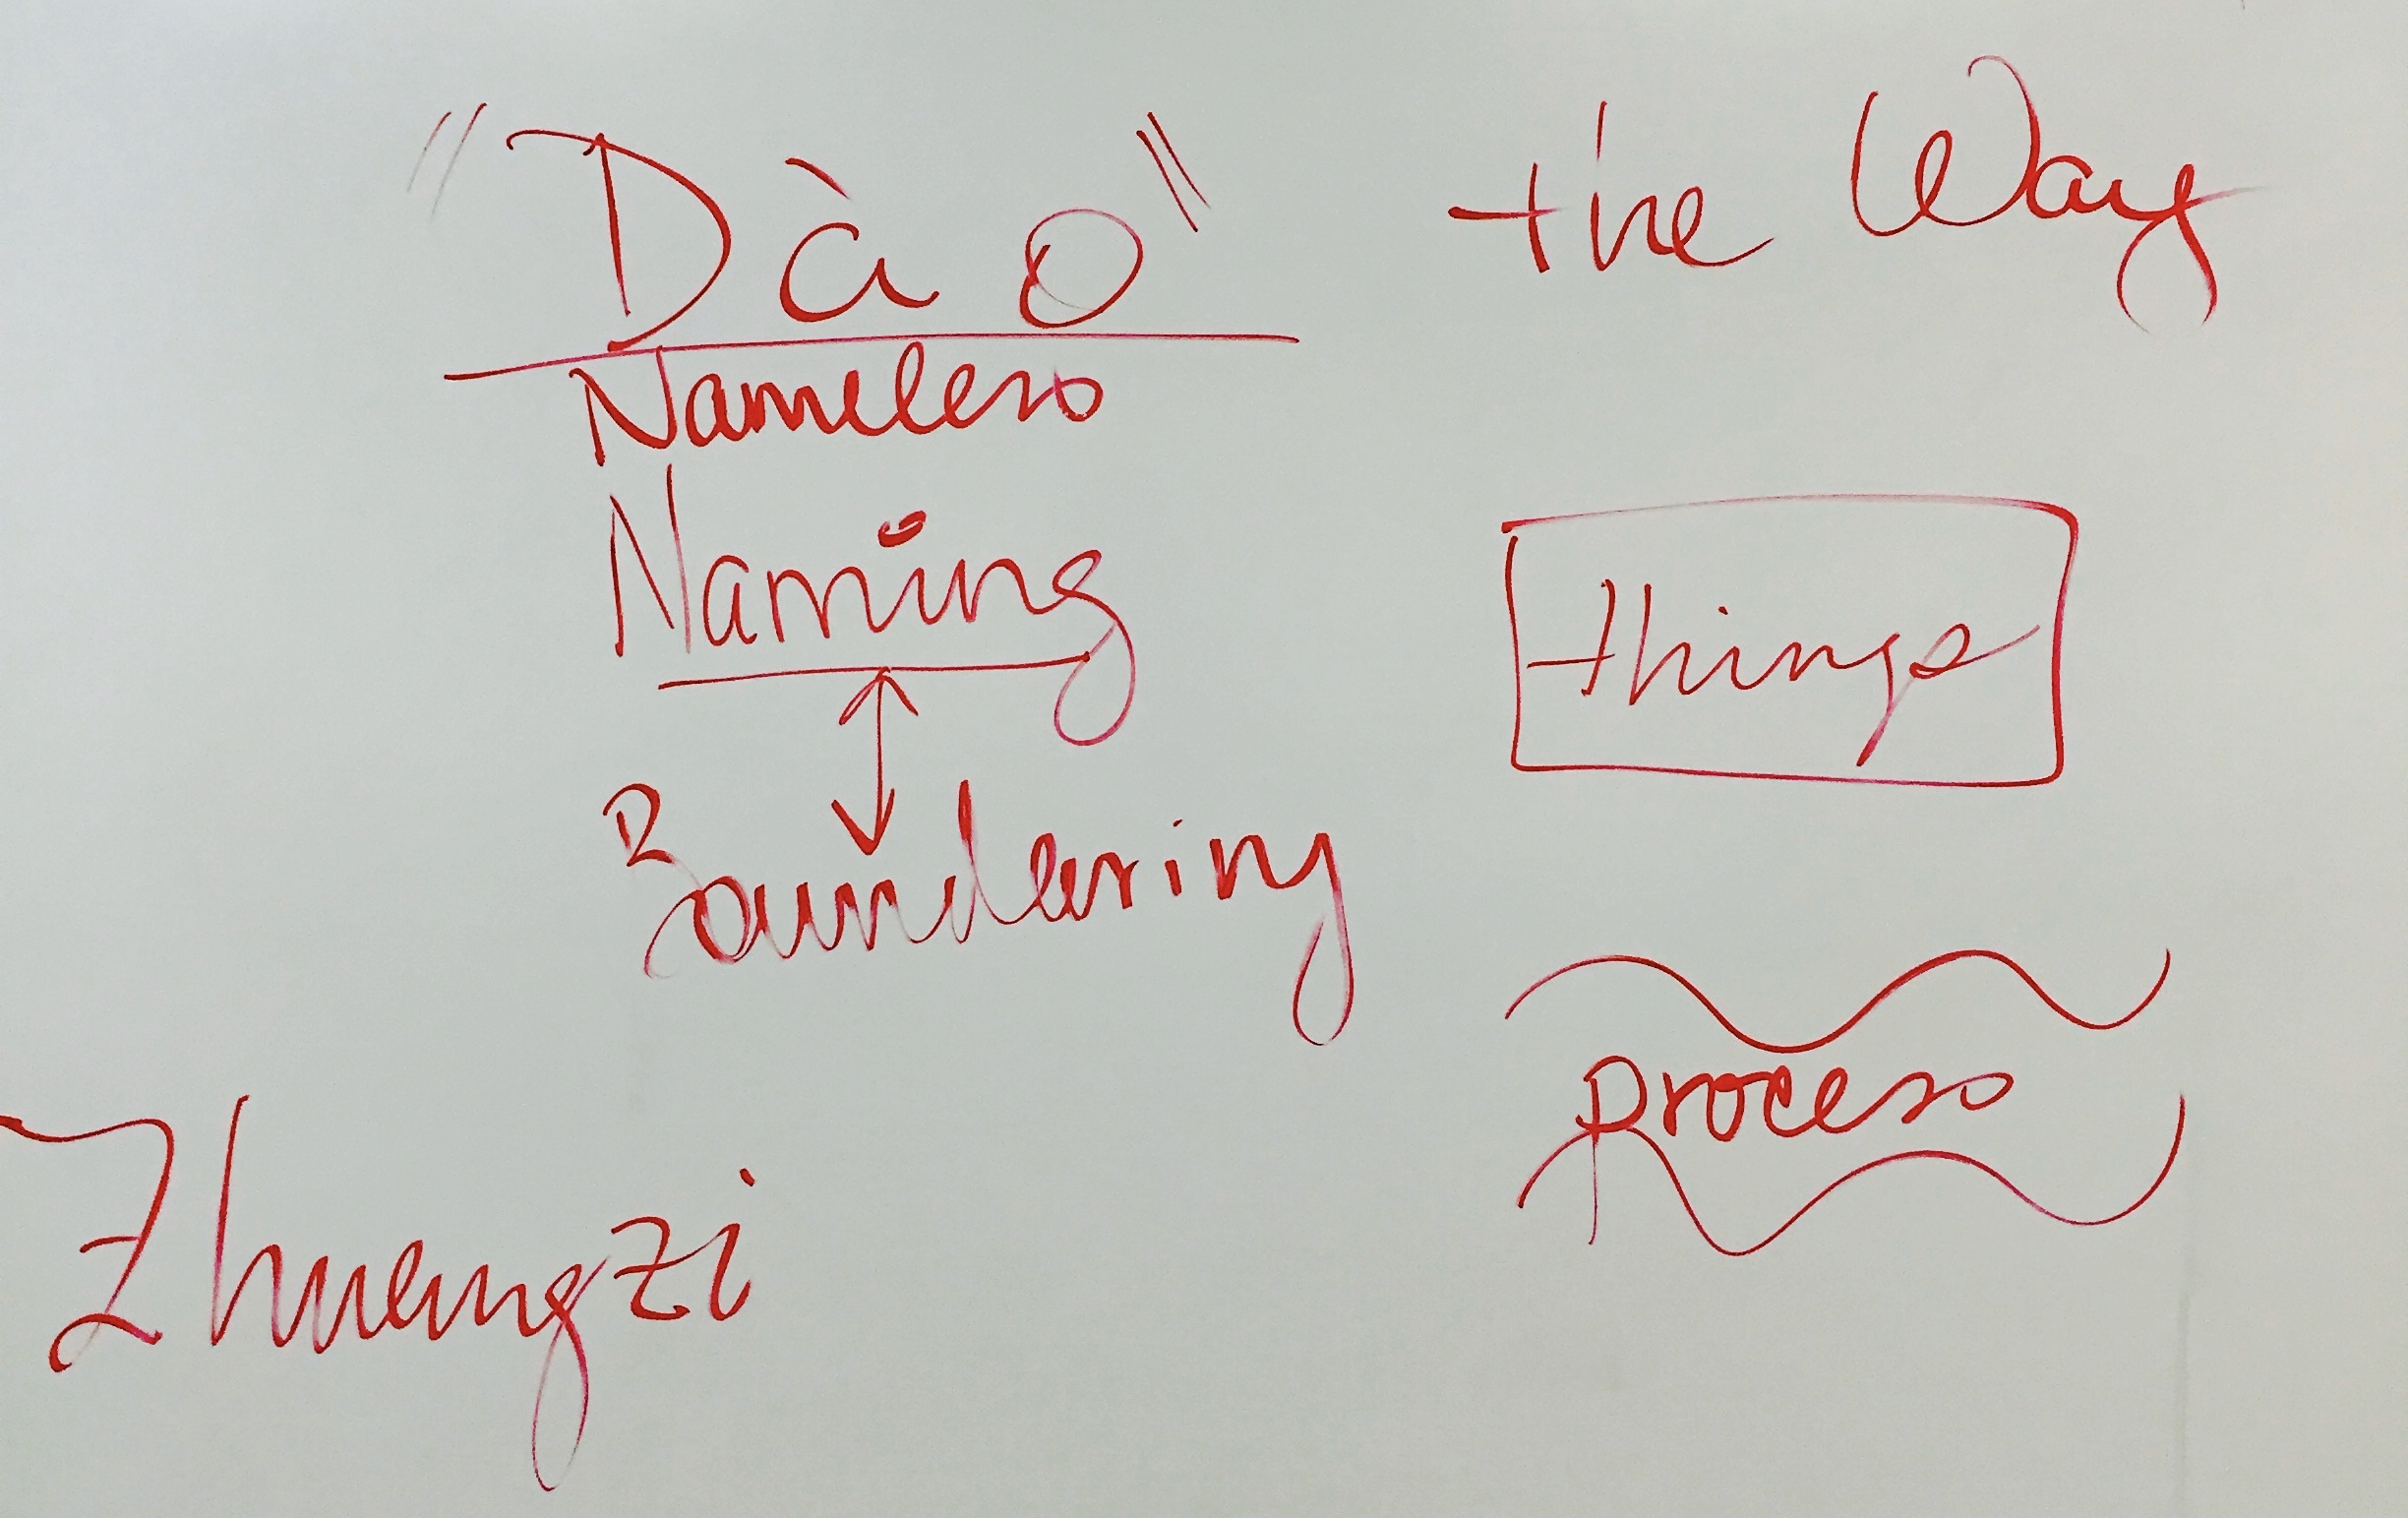 "Dào"
the Way
Nameless
Naming
things
Boundering
process
Zhuangzi